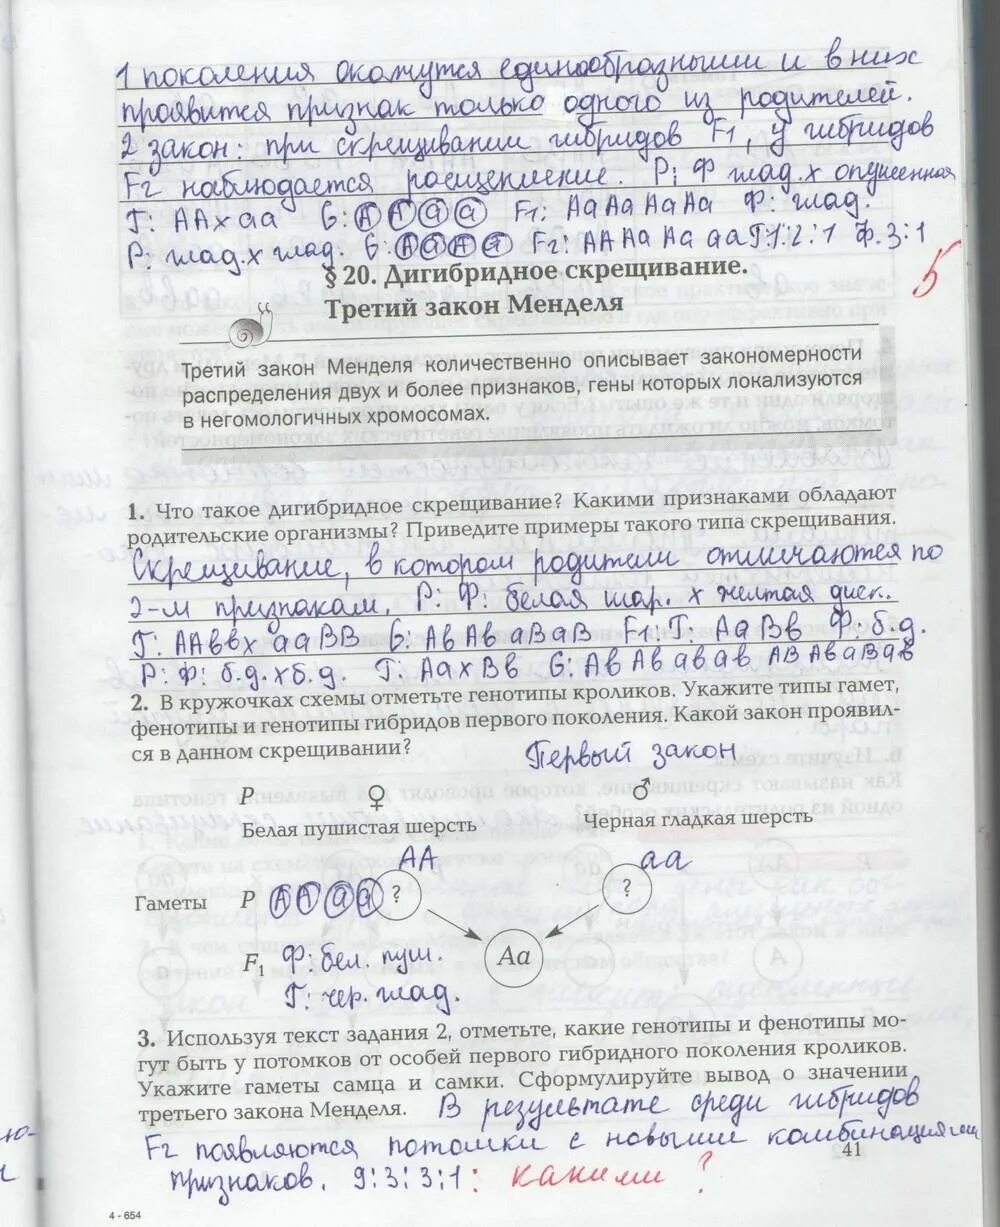 1 поколения окажутся единообразными и в них
проявится признак только одного из родителей.
2 закон: при скрещивании гибридов F1, у гибридов
F2 наблюдается расщепление. Р: Ф глад. х опушенная
Г: АА х аа G: А А а а F1: Аа Аа Аа Аа Ф: глад.
Р: глад. х глад. G: А а А а F2: АА Аа Аа аа Г:1:2:1 Ф.3:1
5
§ 20. Дигибридное скрещивание.
Третий закон Менделя
Третий закон Менделя количественно описывает закономерности
распределения двух и более признаков, гены которых локализуются
в негомологичных хромосомах.
1. Что такое дигибридное скрещивание? Какими признаками обладают
родительские организмы? Приведите примеры такого типа скрещивания.
Скрещивание, в котором родители отличаются по
2-м признакам. Р: Ф: белая шар. х желтая диск.
Г: ААвв х ааВВ G: Ав Ав аВ аВ F1: Г: АаВв Ф: б.д.
Р: Ф: б.д. х б.д. Г: Аа х Вв G: Ав Ав ав ав АВ АВ аВ ав
2. В кружочках схемы отметьте генотипы кроликов. Укажите типы гамет,
фенотипы и генотипы гибридов первого поколения. Какой закон проявил-
ся в данном скрещивании?
Первый закон
Р ♀ ♂
Белая пушистая шерсть Черная гладкая шерсть
АА аа
Гаметы Р А А а а ? ?
F1 Ф: бел. пуш. Аа
Г: чер. глад.
3. Используя текст задания 2, отметьте, какие генотипы и фенотипы мо-
гут быть у потомков от особей первого гибридного поколения кроликов.
Укажите гаметы самца и самки. Сформулируйте вывод о значении
третьего закона Менделя. В результате среди гибридов
F2 появляются потомки с новыми комбинациями
41
признаков. 9:3:3:1: какими ?
4 - 654